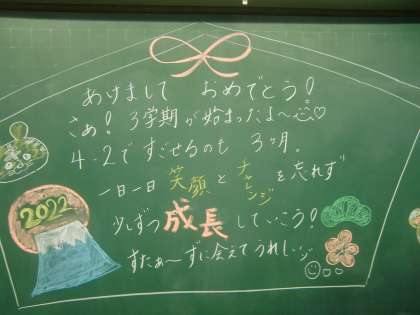 あけまして おめでとう!
さぁ! 3学期が始まったよ〜♡
4-2ですごせるのも 3ヶ月。
一日一日 笑顔とチャレンジを忘れず
少しずつ 成長していこう!
すたぁ〜ずに会えてうれしい
2022